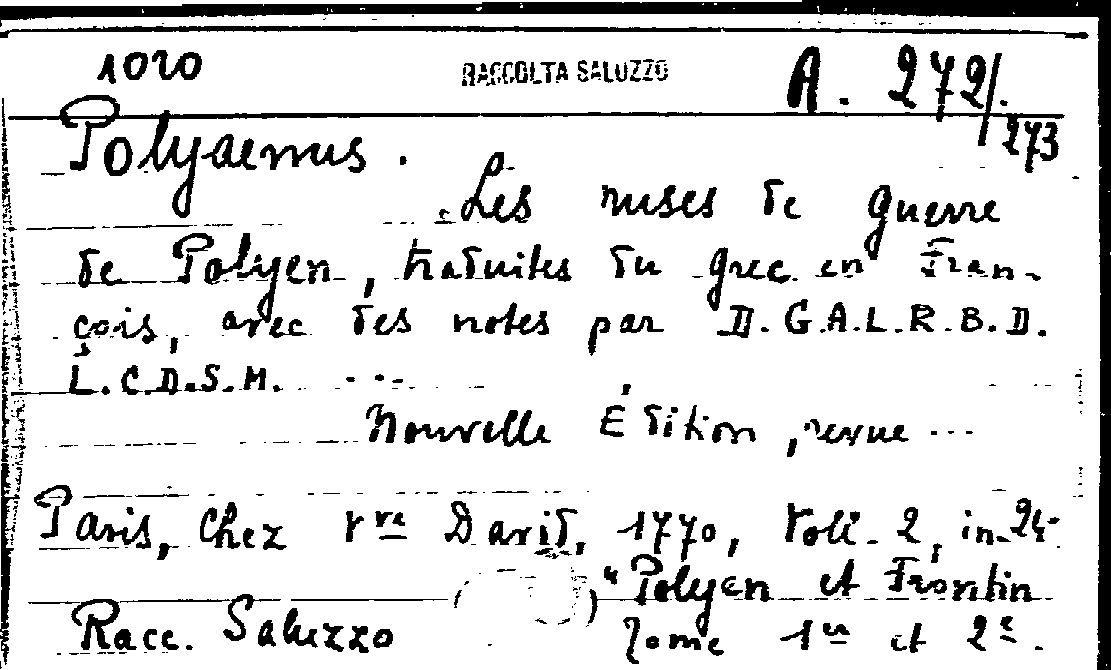 1020 RACCOLTA SALUZZO A. 272/.
273
Polyaenus.
Les ruses de guerre
de Polyen, traduites du grec en Fran-
çois, avec des notes par D.G.A.L.R.B.D.
L.C.D.S.M. ...
Nouvelle Édition, revue ...
Paris, Chez Vve David, 1770, Voll. 2, in-24.
"Polyen et Frontin
Racc. Saluzzo Tome 1er et 2e.